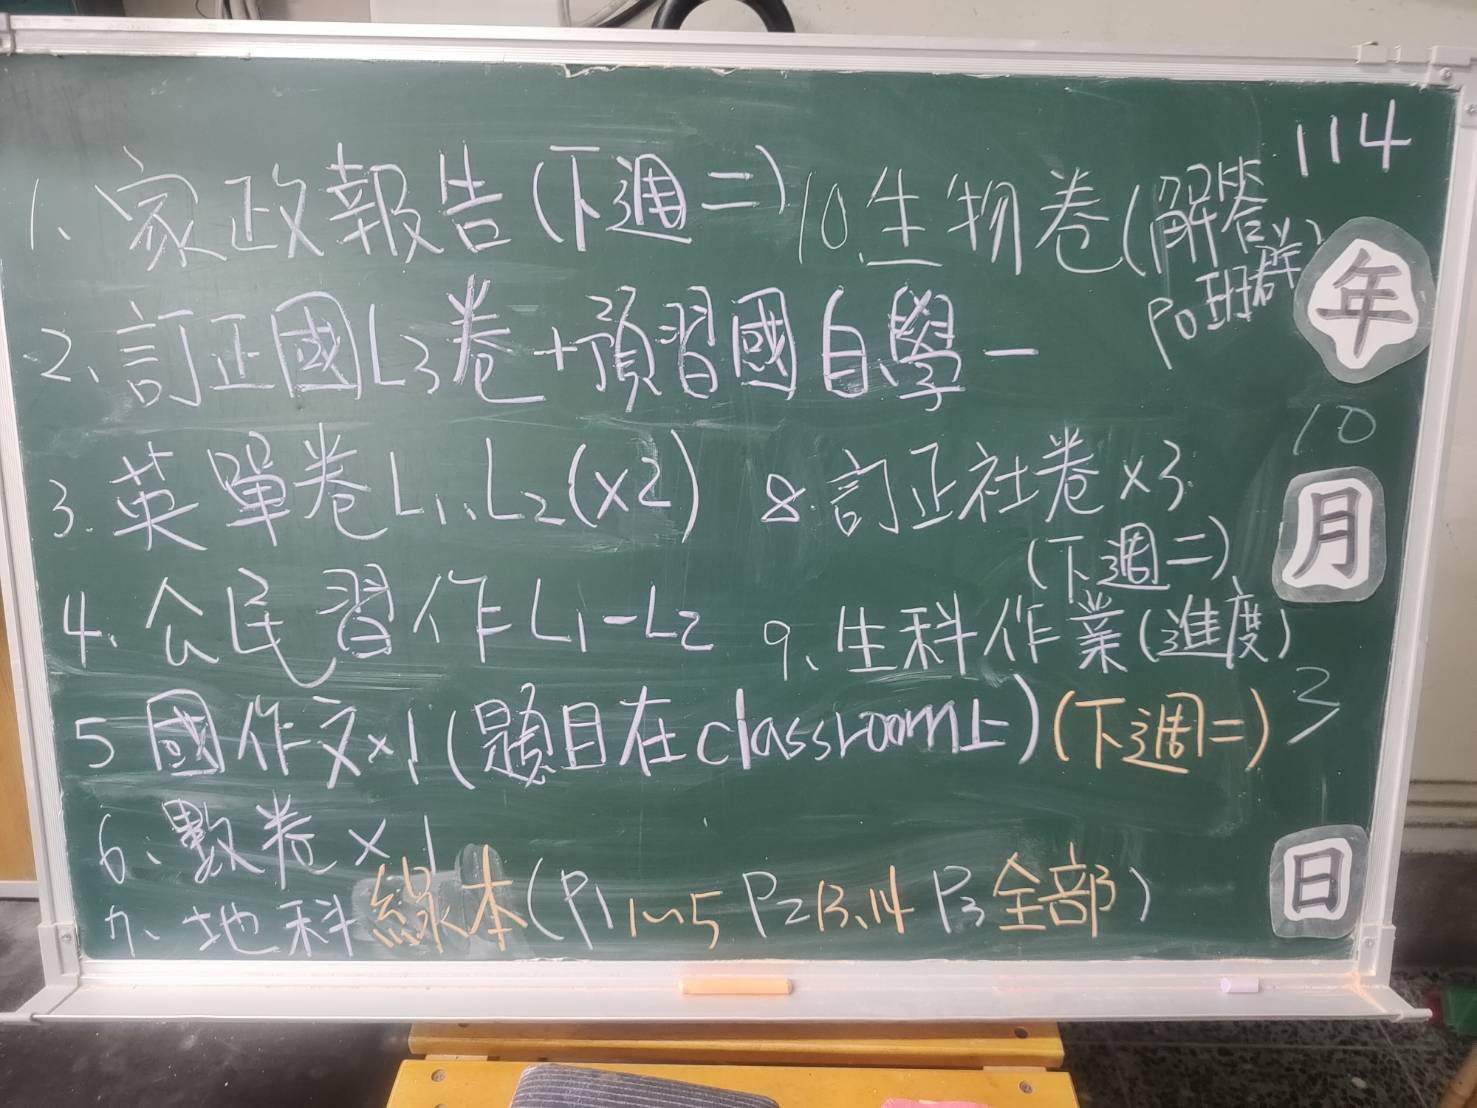 1、家政報告(下週二)
2、訂正國L3卷+預習國自學一
3.英單卷L1、L2(x2)
4、公民習作L1-L2
5 國作文x1(題目在classroom上)(下週二)
6、數卷x1
7、地科綠本(P1 1~5 P2 13、14 P3 全部)
8.訂正社卷x3
(下週二)
9、生科作業(進度)
10.生物卷(解答
Po班群)
114
年
10
月
3
日